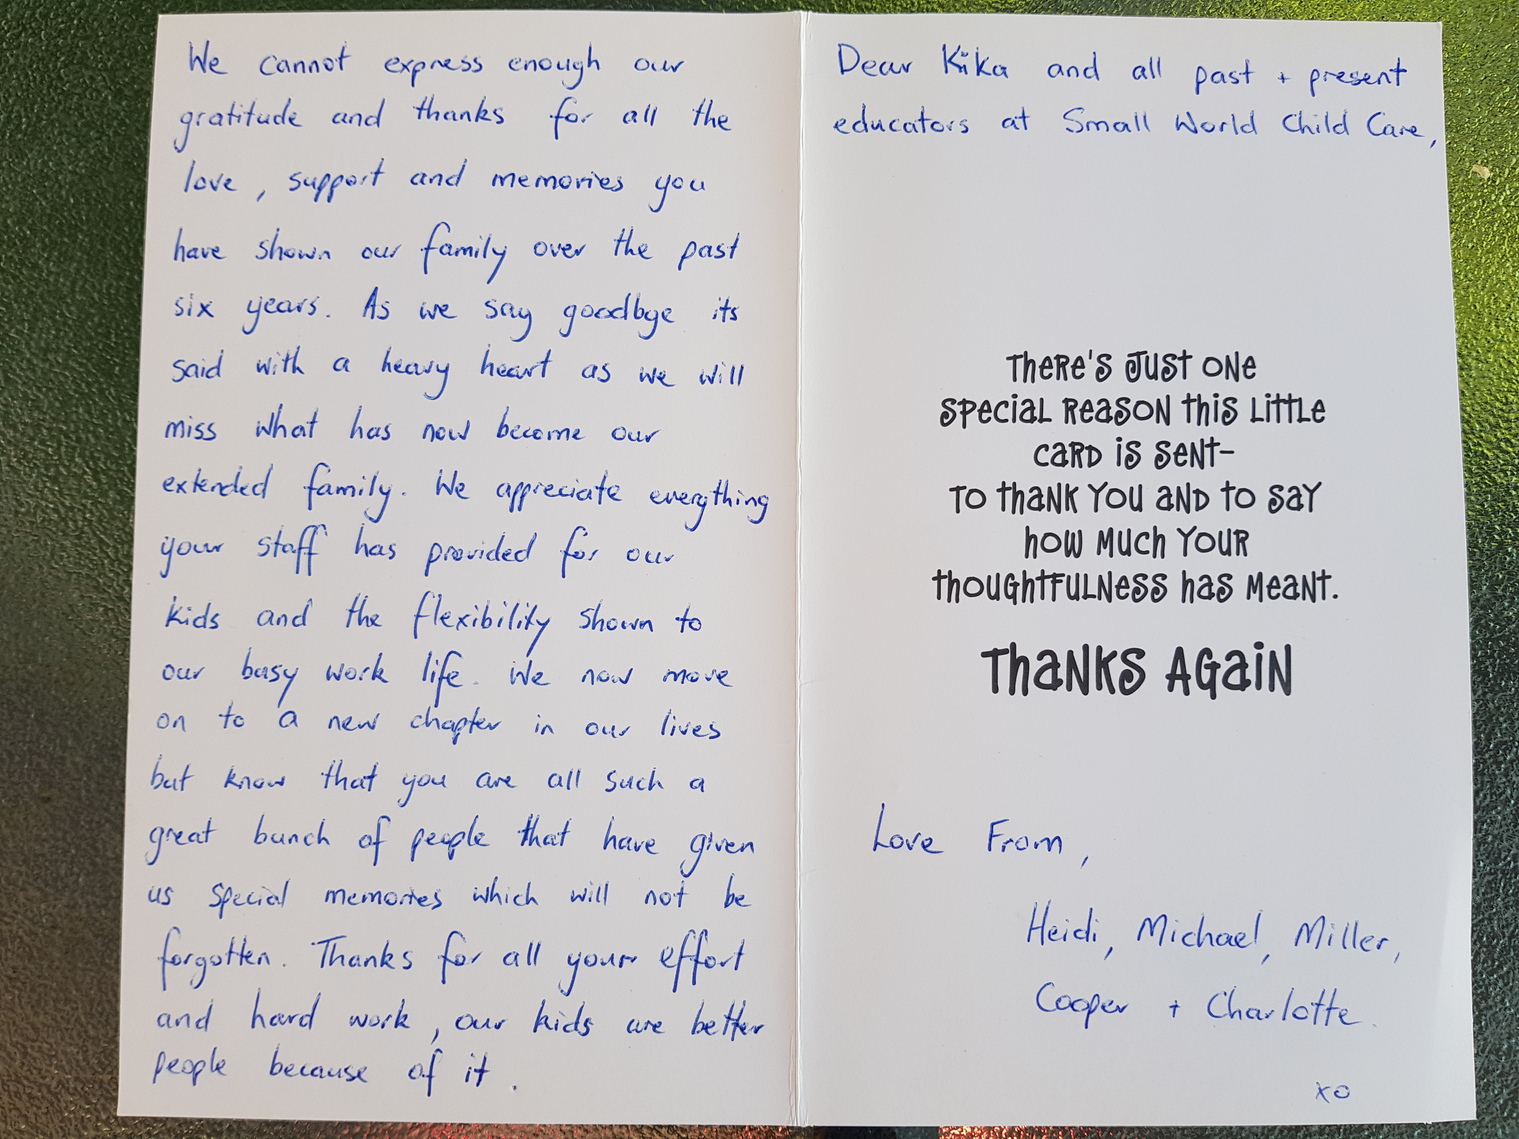 We cannot express enough our
gratitude and thanks for all the
love, support and memories you
have shown our family over the past
six years. As we say goodbye its
said with a heavy heart as we will
miss what has now become our
extended family. We appreciate everything
your staff has provided for our
kids and the flexibility shown to
our busy work life. We now move
on to a new chapter in our lives
but know that you are all such a
great bunch of people that have given
us special memories which will not be
forgotten. Thanks for all your effort
and hard work, our kids are better
people because of it.
Dear Kika and all past + present
educators at Small World Child Care,
THERE'S JUST ONE
SPECIAL REASON THIS LITTLE
CARD IS SENT-
TO THANK YOU AND TO SAY
HOW MUCH YOUR
THOUGHTFULNESS HAS MEANT.
THANKS AGAIN
Love From,
Heidi, Michael, Miller,
Cooper + Charlotte.
xo